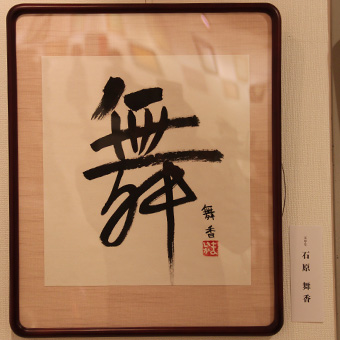 舞
舞香
石原 舞香